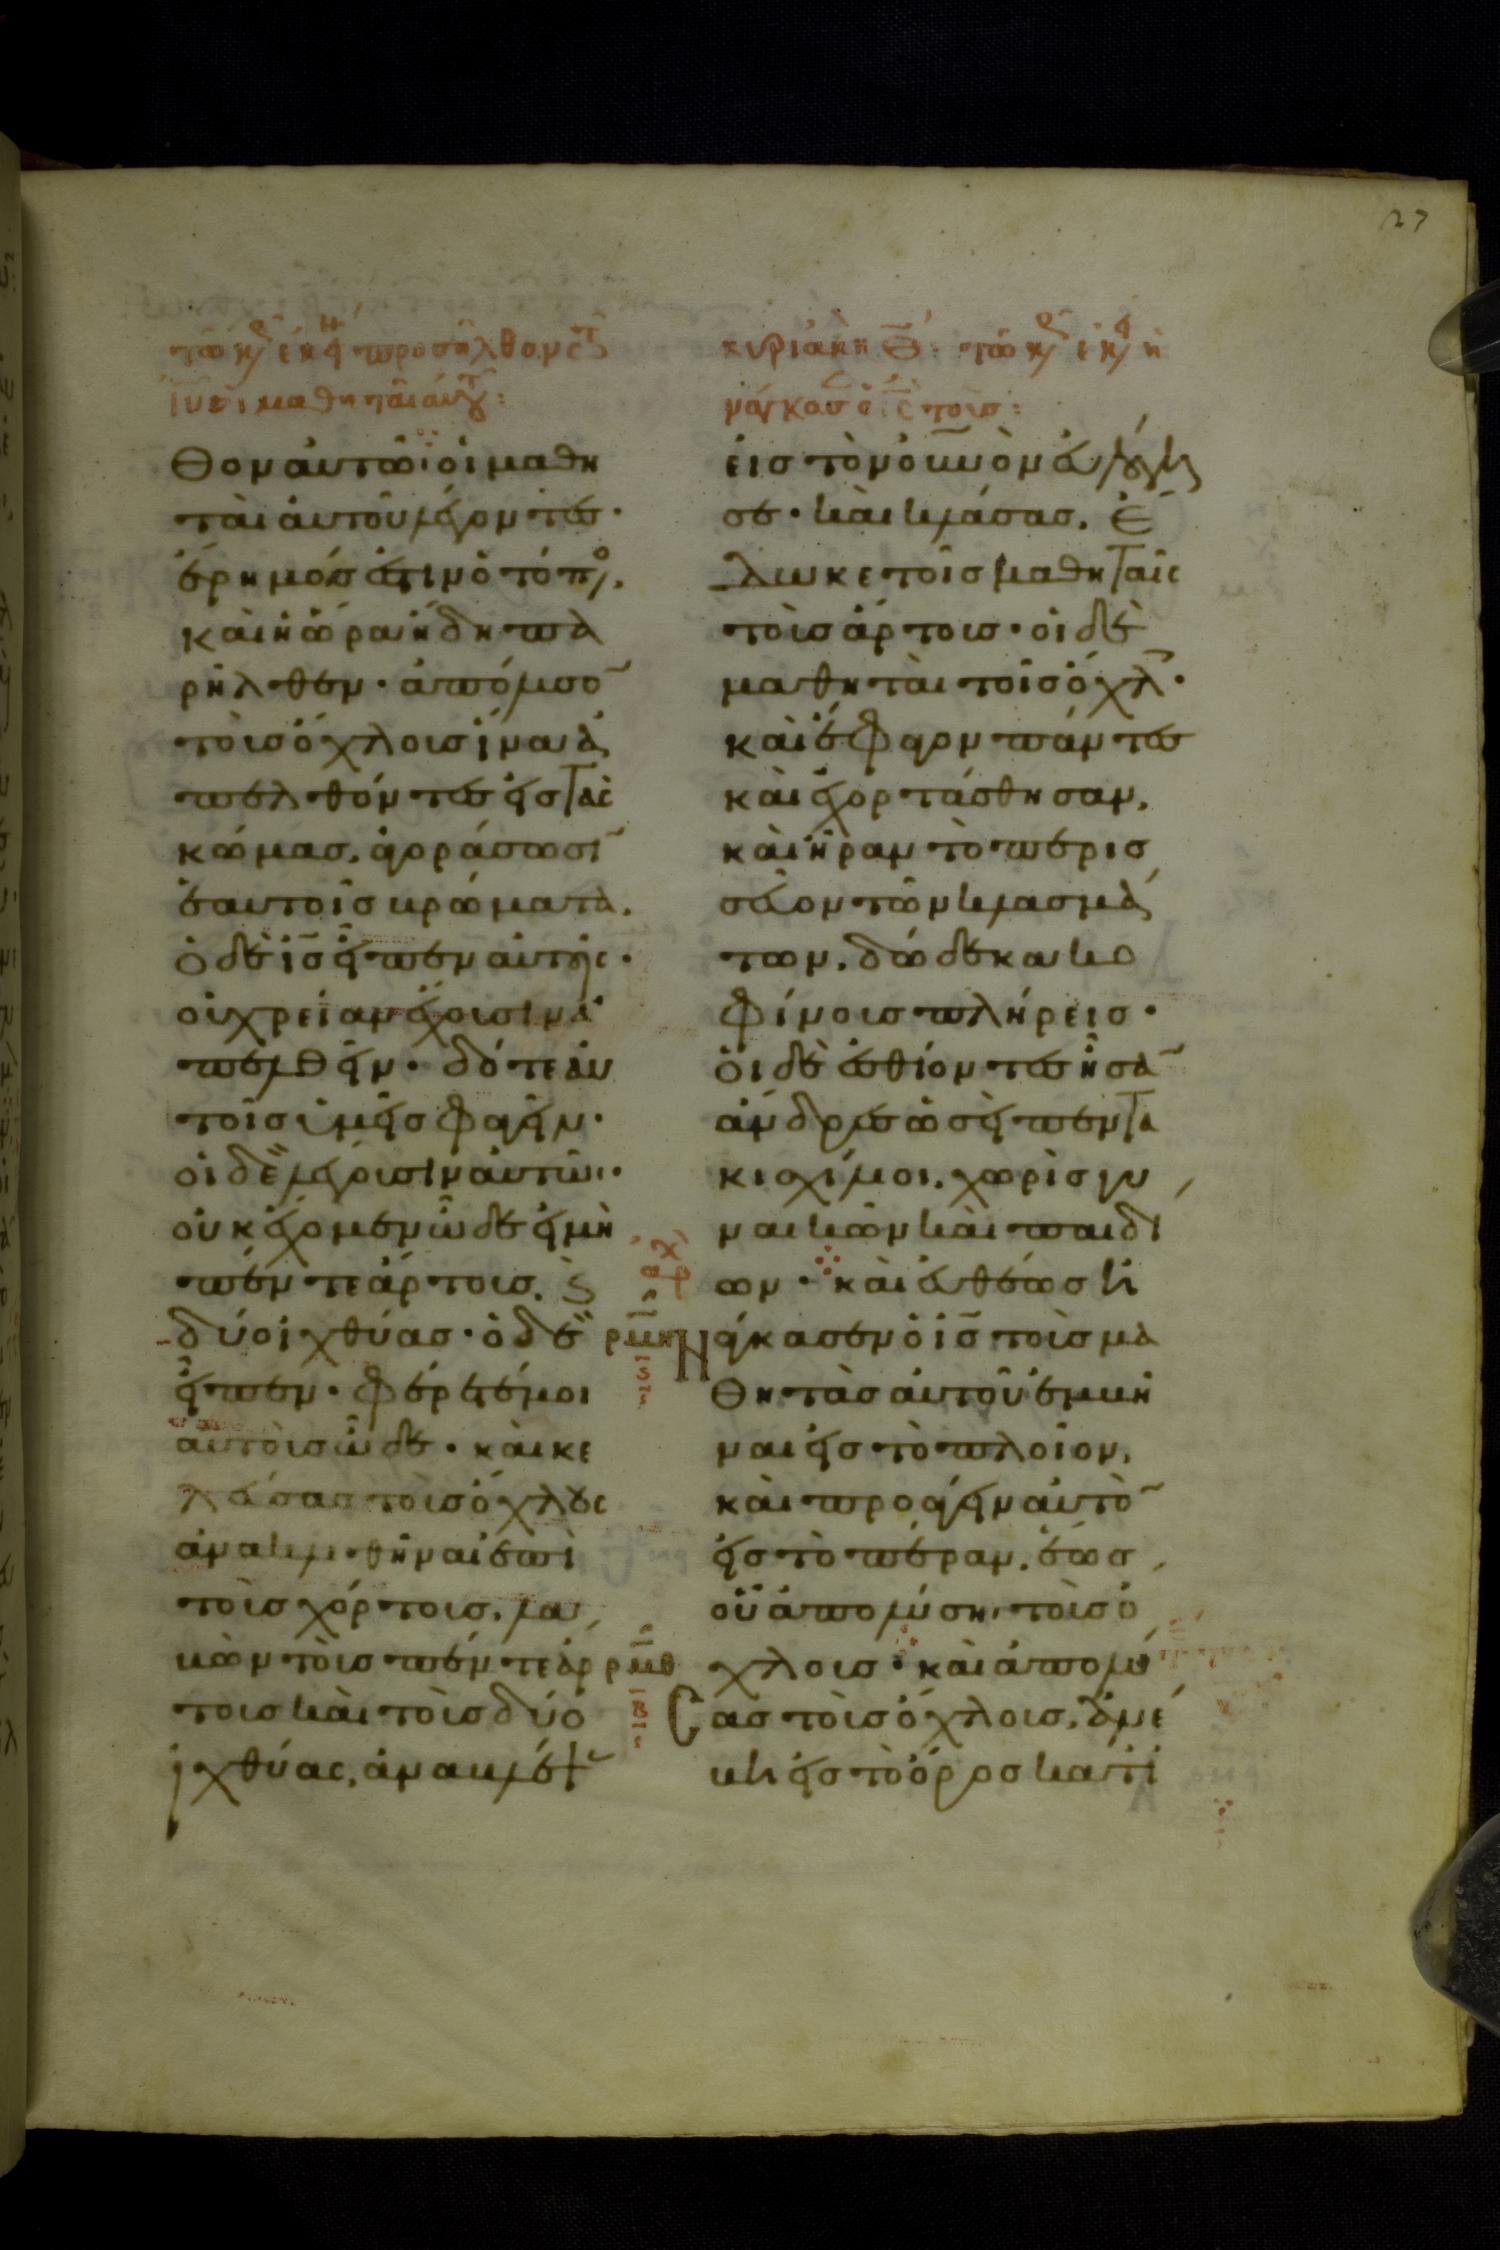 τῶ κρ ἐκεί προσῆλθον τ
ιυ οι μαθηται αυτου:
θον αὐτῶ· οἱ μαθη
ταὶ αὐτοῦ λέγοντες·
ἔρημός ἐστιν ὁ τόπο,
καὶ ἡ ὥρα ἤδη πα
ρῆλθεν· ἀπόλυσο͂
τοὺς ὄχλους ἵνα ἀ
πελθόντες εἰς τὰς
κώμας, ἀγοράσωσι̅
ἑαυτοῖς βρώματα.
ὁ δὲ ι̅ς̅ εἶπεν αὐτοῖς·
οὐ χρείαν ἔχουσιν ἀ
πελθεῖν· δότε αὐ
τοῖς ὑμεῖς φαγεῖν·
οἱ δὲ λέγουσιν αὐτῶ·
οὐκ ἔχομεν ὧδε εἰ μὴ
πέντε ἄρτους, ϗ
δύο ἰχθύας· ὁ δὲ
εἶπεν· φέρετέ μοι
αὐτοὺς ὧδε· καὶ κε
λεύσας τοὺς ὄχλους
ἀνακλιθῆναι ἐπὶ
τοὺς χόρτους, λα
βὼν τοὺς πέντε ἄρ
τους καὶ τοὺς δύο
ἰχθύας, ἀναβλέψ
κυριακη θ: τῶ κρ ἐκ η
νάγκασ ο ι̅ς̅ τοὺσ:
εἰς τὸν οὐ̅νὸν εὐλόγη
σε· καὶ κλάσας, ἔ
δωκε τοῖς μαθηταῖς
τοὺς ἄρτους· οἱ δὲ
μαθηταὶ τοῖς ὄχλ·
καὶ ἔφαγον πάντες
καὶ ἐχορτάσθησαν,
καὶ ἦραν τὸ περισ
σεῦον τῶν κλασμά
των, δώδεκα κο
φίνους πλήρεις·
οἱ δὲ ἐσθίοντες ἦσα̅
ἄνδρες ὡσεὶ πεντα
κισχίλιοι, χωρὶς γυ
ναικῶν καὶ παιδί
ων· καὶ εὐθέως ἠ
ρμη
ἠνάγκασεν ὁ ι̅ς̅ τοὺς μα
θητὰς αὐτοῦ ἐμβῆ
ναι εἰς τὸ πλοῖον,
καὶ προάγειν αὐτὸ̅
εἰς τὸ πέραν, ἕως
οὗ ἀπολύση, τοὺς ὄ
χλους· καὶ ἀπολύ
ρμθ
σας τοὺς ὄχλους, ἀνέ
βη εἰς τὸ ὄρος κατ' ἰ
27